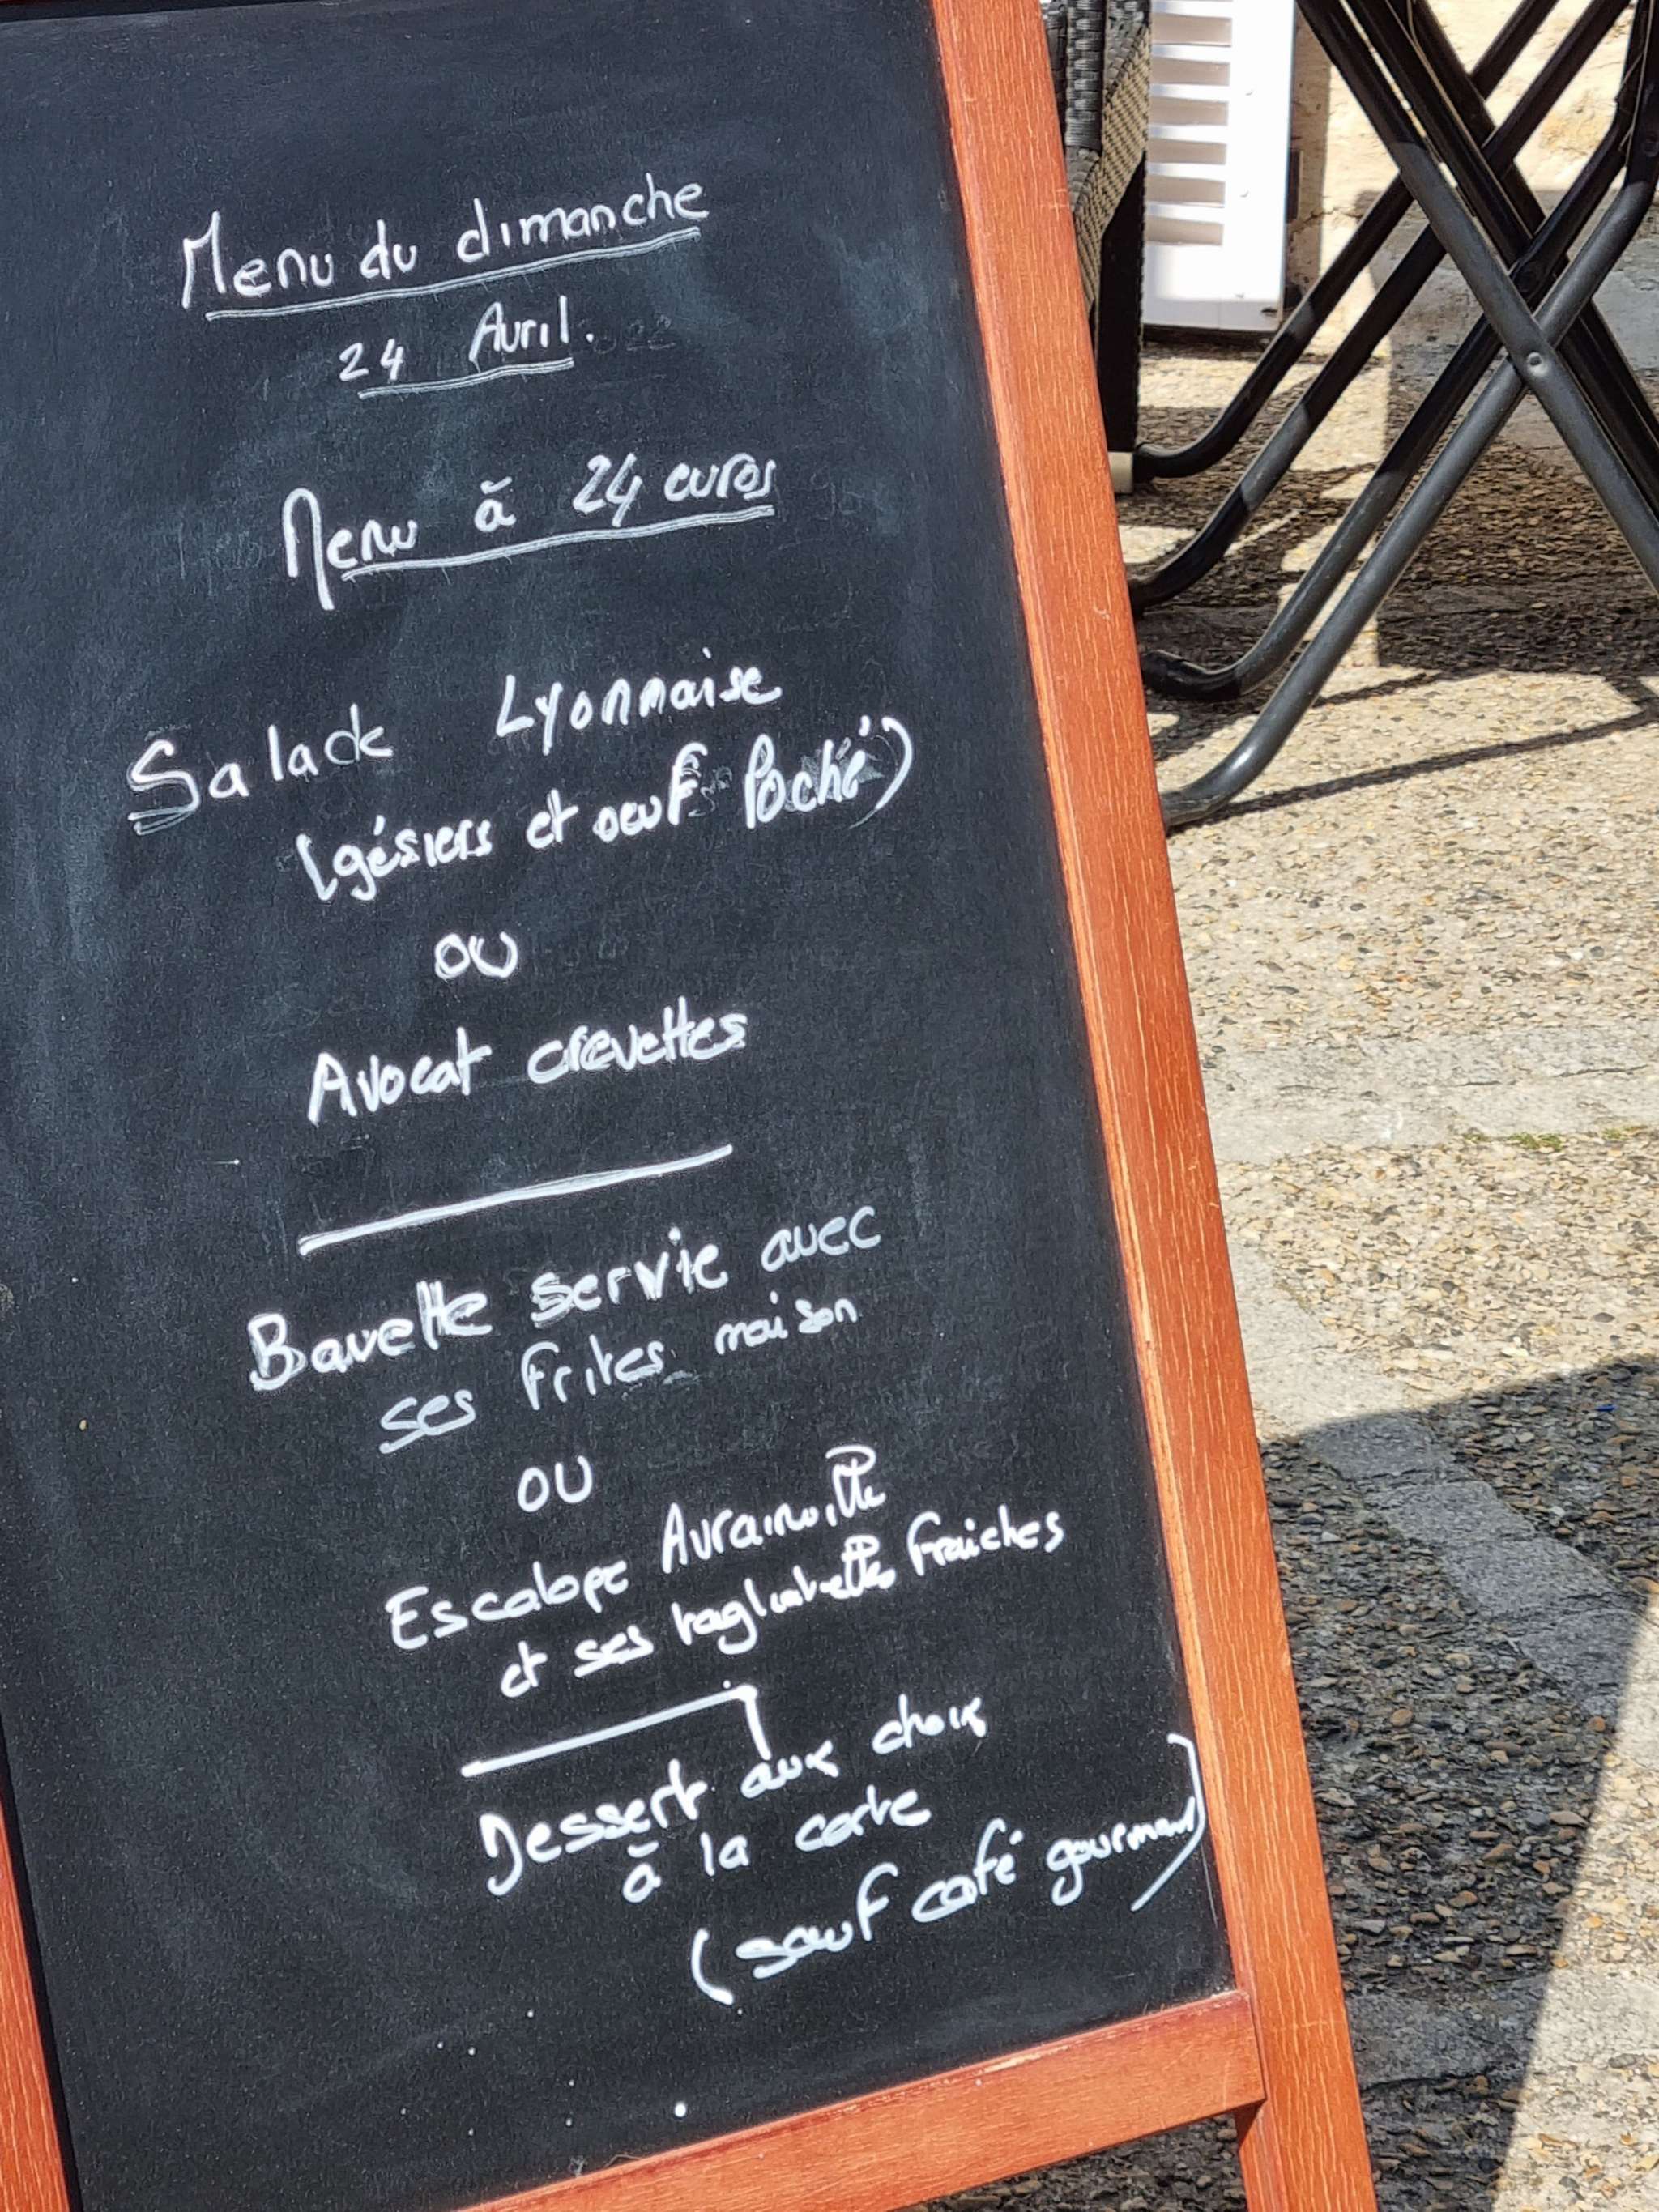 Menu du dimanche
24 Avril.
Menu à 24 euros
Salade Lyonnaise
(gésiers et oeuf Poché)
OU
Avocat crevettes
Bavette servie avec
ses frites maison
OU
Escalope Avrainville
et ses tagliatelles fraiches
Dessert aux choix
à la carte
(sauf café gourmand)